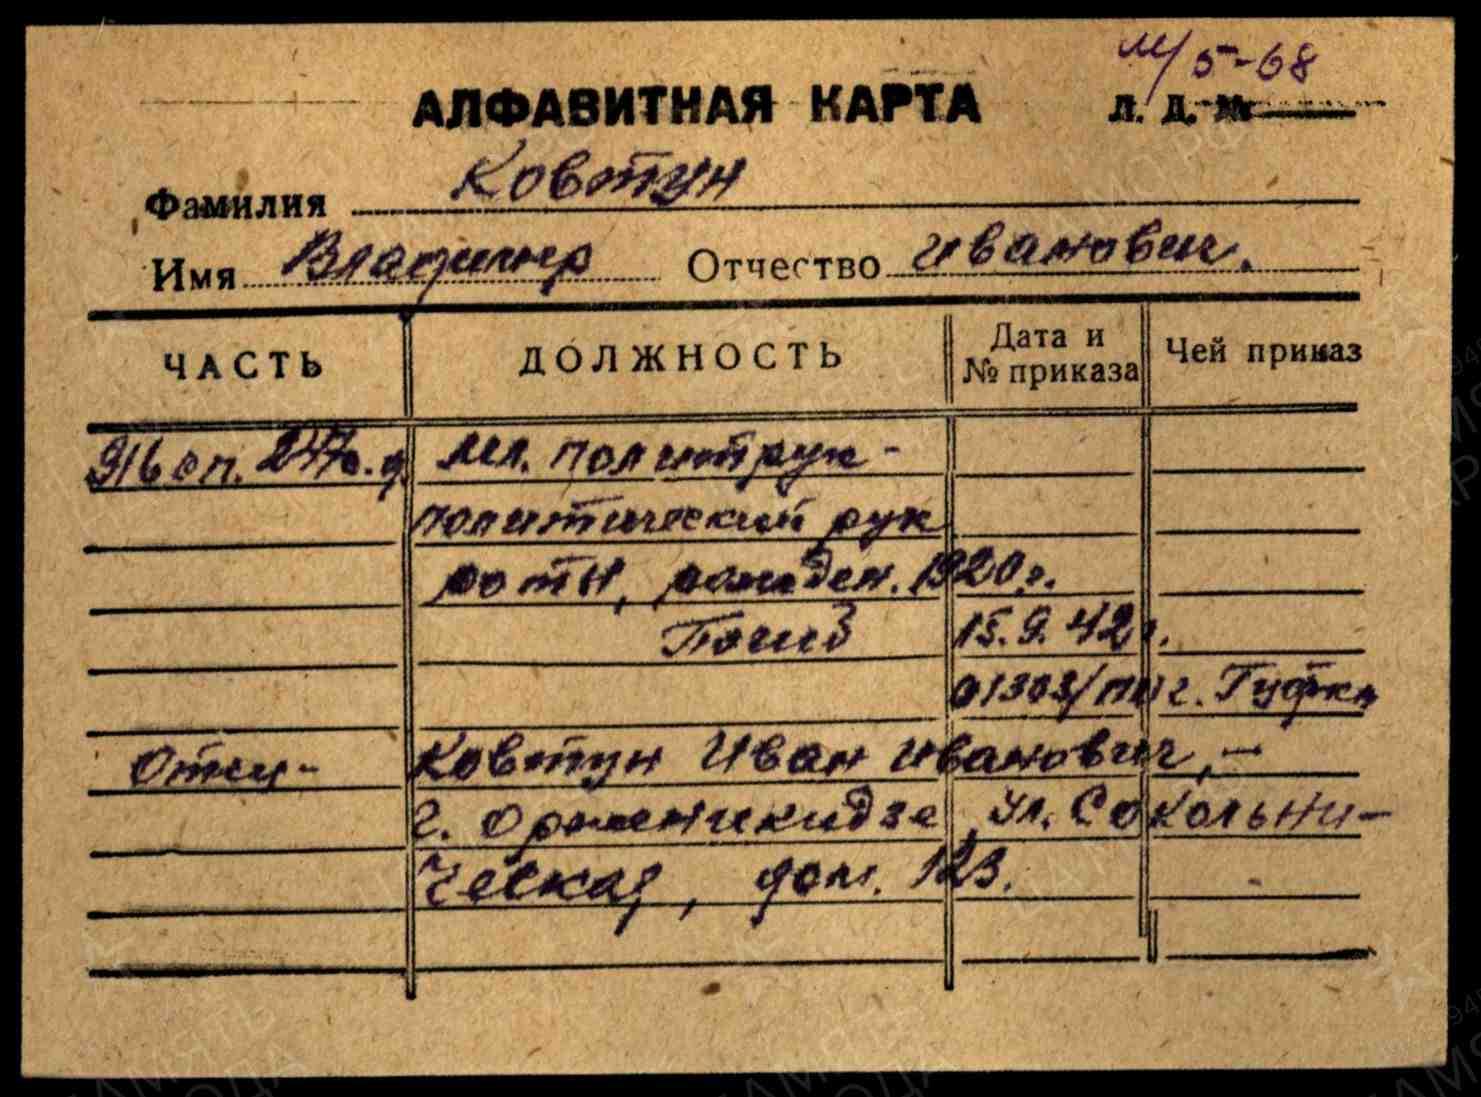 м/5-68
АЛФАВИТНАЯ КАРТА Л. Д. №
Фамилия Ковтун
Имя Владимир Отчество Иванович.
ЧАСТЬ ДОЛЖНОСТЬ Дата и № приказа Чей приказ
916 сп. 247с.д. Мл. политрук -
политический рук
роты, рожден. 1920г.
Погиб 15.9.42г.
01303/пог. Гуфка
Отец - Ковтун Иван Иванович, -
г. Орженикидзе, ул. Сокольни-
ческая, дом. 123.